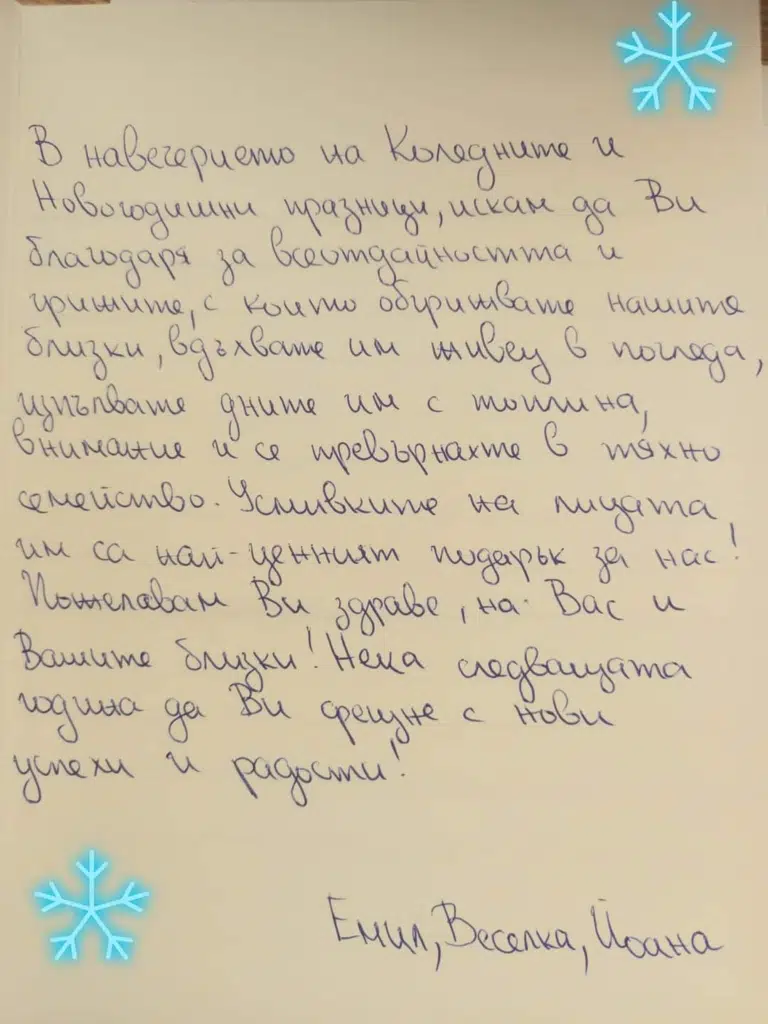 В навечерието на Коледните и
Новогодишни празници, искам да Ви
благодаря за всеотдайността и
грижите, с които обгрижвате нашите
близки, вдъхвате им живец в погледа,
изпълвате дните им с топлина,
внимание и се превърнахте в тяхно
семейство. Усмивките на лицата
им са най-ценният подарък за нас!
Пожелавам Ви здраве, на Вас и
Вашите близки! Нека следващата
година да Ви срещне с нови
успехи и радости!
Емил, Веселка, Йоана